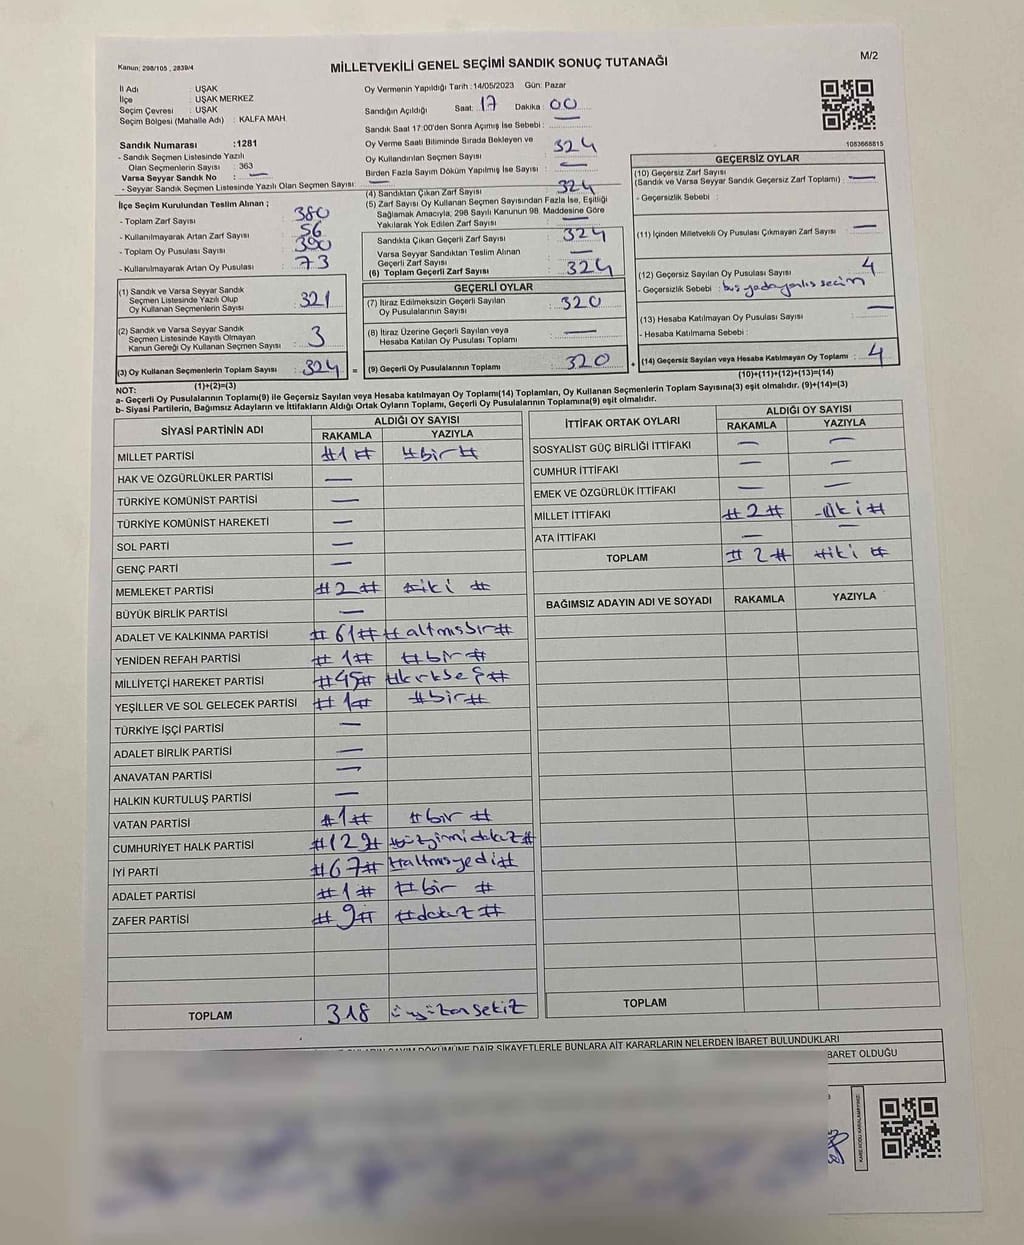 Kanun; 298/105 , 2839/4
MİLLETVEKİLİ GENEL SEÇİMİ SANDIK SONUÇ TUTANAĞI
M/2
İl Adı : UŞAK
İlçe : UŞAK MERKEZ
Seçim Çevresi : UŞAK
Seçim Bölgesi (Mahalle Adı) : KALFA MAH.
Sandık Numarası :1281
- Sandık Seçmen Listesinde Yazılı
Olan Seçmenlerin Sayısı : 363
Varsa Seyyar Sandık No : —
- Seyyar Sandık Seçmen Listesinde Yazılı Olan Seçmen Sayısı: —
İlçe Seçim Kurulundan Teslim Alınan ;
- Toplam Zarf Sayısı : 380
- Kullanılmayarak Artan Zarf Sayısı : 56
- Toplam Oy Pusulası Sayısı :
- Kullanılmayarak Artan Oy Pusulası : 73
(1) Sandık ve Varsa Seyyar Sandık
Seçmen Listesinde Yazılı Olup
Oy Kullanan Seçmenlerin Sayısı : 321
(2) Sandık ve Varsa Seyyar Sandık
Seçmen Listesinde Kayıtlı Olmayan
Kanun Gereği Oy Kullanan Seçmen Sayısı : 3
(3) Oy Kullanan Seçmenlerin Toplam Sayısı : 324 =
(1)+(2)=(3)
Oy Vermenin Yapıldığı Tarih :14/05/2023 Gün: Pazar
Sandığın Açıldığı Saat: 17 Dakika : 00
Sandık Saat 17:00'den Sonra Açmış İse Sebebi : —
Oy Verme Saati Bitiminde Sırada Bekleyen ve
Oy Kullandırılan Seçmen Sayısı : 324
Birden Fazla Sayım Döküm Yapılmış İse Sayısı : —
(4) Sandıktan Çıkan Zarf Sayısı : 324
(5) Zarf Sayısı Oy Kullanan Seçmen Sayısından Fazla İse, Eşitliği
Sağlamak Amacıyla, 298 Sayılı Kanunun 98. Maddesine Göre
Yakılarak Yok Edilen Zarf Sayısı : —
Sandıkta Çıkan Geçerli Zarf Sayısı : 324
Varsa Seyyar Sandıktan Teslim Alınan
Geçerli Zarf Sayısı : —
(6) Toplam Geçerli Zarf Sayısı : 324
GEÇERLİ OYLAR
(7) İtiraz Edilmeksizin Geçerli Sayılan
Oy Pusulalarının Sayısı : 320
(8) İtiraz Üzerine Geçerli Sayılan veya
Hesaba Katılan Oy Pusulası Toplamı : —
(9) Geçerli Oy Pusulalarının Toplamı : 320 +
1083668815
GEÇERSİZ OYLAR
(10) Geçersiz Zarf Sayısı
(Sandık ve Varsa Seyyar Sandık Geçersiz Zarf Toplamı) : —
- Geçersizlik Sebebi :
(11) İçinden Milletvekili Oy Pusulası Çıkmayan Zarf Sayısı : —
(12) Geçersiz Sayılan Oy Pusulası Sayısı : 4
- Geçersizlik Sebebi : boş yada yanlış seçim
(13) Hesaba Katılmayan Oy Pusulası Sayısı : —
- Hesaba Katılmama Sebebi :
(14) Geçersiz Sayılan veya Hesaba Katılmayan Oy Toplamı : 4
(10)+(11)+(12)+(13)=(14)
NOT:
a- Geçerli Oy Pusulalarının Toplamı(9) ile Geçersiz Sayılan veya Hesaba katılmayan Oy Toplamı(14) Toplamları, Oy Kullanan Seçmenlerin Toplam Sayısına(3) eşit olmalıdır. (9)+(14)=(3)
b- Siyasi Partilerin, Bağımsız Adayların ve İttifakların Aldığı Ortak Oyların Toplamı, Geçerli Oy Pusulalarının Toplamına(9) eşit olmalıdır.
SİYASİ PARTİNİN ADI
ALDIĞI OY SAYISI
RAKAMLA YAZIYLA
MİLLET PARTİSİ #1# #bir#
HAK VE ÖZGÜRLÜKLER PARTİSİ —
TÜRKİYE KOMÜNİST PARTİSİ —
TÜRKİYE KOMÜNİST HAREKETİ —
SOL PARTİ —
GENÇ PARTİ —
MEMLEKET PARTİSİ #2# #iki #
BÜYÜK BİRLİK PARTİSİ —
ADALET VE KALKINMA PARTİSİ #61# #altmışbir#
YENİDEN REFAH PARTİSİ #1# #bir#
MİLLİYETÇİ HAREKET PARTİSİ #45#
YEŞİLLER VE SOL GELECEK PARTİSİ #1# #bir#
TÜRKİYE İŞÇİ PARTİSİ —
ADALET BİRLİK PARTİSİ —
ANAVATAN PARTİSİ —
HALKIN KURTULUŞ PARTİSİ —
VATAN PARTİSİ #1# #bir #
CUMHURİYET HALK PARTİSİ #129#
İYİ PARTİ #67# #altmışyedi#
ADALET PARTİSİ #1# #bir #
ZAFER PARTİSİ #9# #dokuz#
TOPLAM 318 üçyüzonsekiz
İTTİFAK ORTAK OYLARI
ALDIĞI OY SAYISI
RAKAMLA YAZIYLA
SOSYALİST GÜÇ BİRLİĞİ İTTİFAKI — —
CUMHUR İTTİFAKI — —
EMEK VE ÖZGÜRLÜK İTTİFAKI — —
MİLLET İTTİFAKI #2# #iki#
ATA İTTİFAKI — —
TOPLAM #2# #iki #
BAĞIMSIZ ADAYIN ADI VE SOYADI RAKAMLA YAZIYLA
TOPLAM
DÖKÜMÜNE DAİR ŞİKAYETLERLE BUNLARA AİT KARARLARIN NELERDEN İBARET BULUNDUKLARI
İBARET OLDUĞU
KARE KODU KARALAMAYINIZ!